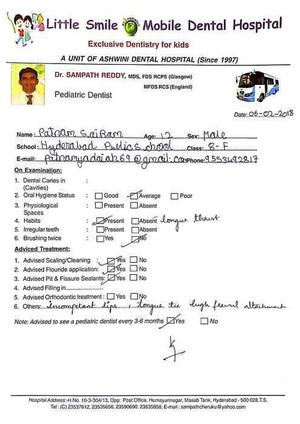 Little Smile Mobile Dental Hospital
Exclusive Dentistry for kids
A UNIT OF ASHWINI DENTAL HOSPITAL (Since 1997)
Dr. SAMPATH REDDY, MDS, FDS RCPS (Glasgow)
MFDS RCS (England)
Pediatric Dentist
Date: 06-02-2018
Name: Patnam SaiRam Age: 12 Sex: Male
School: Hyderabad Public School Class: 8-F
E-mail: @gmail.com Phone:
On Examination:
1. Dental Caries in :
(Cavities)
2. Oral Hygiene Status : Good Average Poor
3. Physiological : Present Absent
Spaces
4. Habits : Present Absent tongue thrust
5. Irregular teeth : Present Absent
6. Brushing twice : Yes No
Adviced Treatment:
1. Advised Scaling/Cleaning : Yes No
2. Advised Flouride application: Yes No
3. Advised Pit & Fissure Sealants: Yes No
4. Advised Filling in
5. Advised Orthodontic treatment : Yes No
6. Others: incompetent lips, tongue tie high frenal attachment
Note: Advised to see a pediatric dentist every 3-6 months Yes No
Hospital Address: H.No. 10-3-304/13, Opp. Post Office, Humayunnagar, Masab Tank, Hyderabad - 500 028, T.S.
Tel: (C) 23537612, 23535656, 23590690, 23535858, E-mail : sampathcheruku@yahoo.com